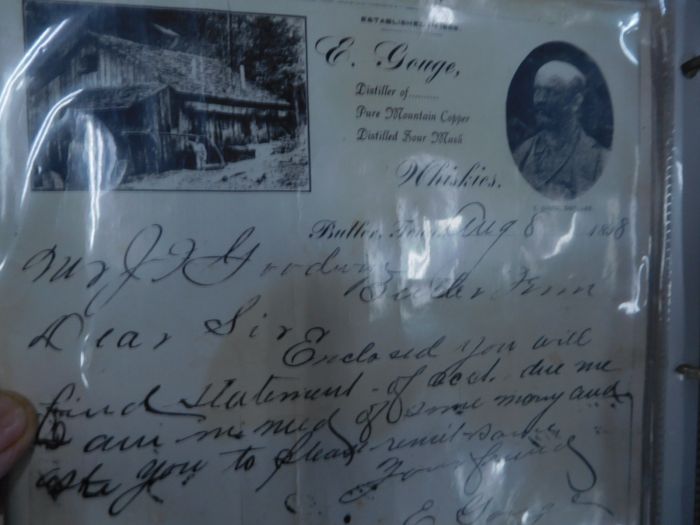 E. Gouge,
Distiller of
Pure Mountain Copper
Distilled Sour Mash
Whiskies.
Butler, Tenn. Aug 8
Mr J F Goodwin
Butler Tenn
Dear Sir
Enclosed you will
find statement of acct. due me
I am in need of some money and
ask you to please remit same
Your friend
E Gouge